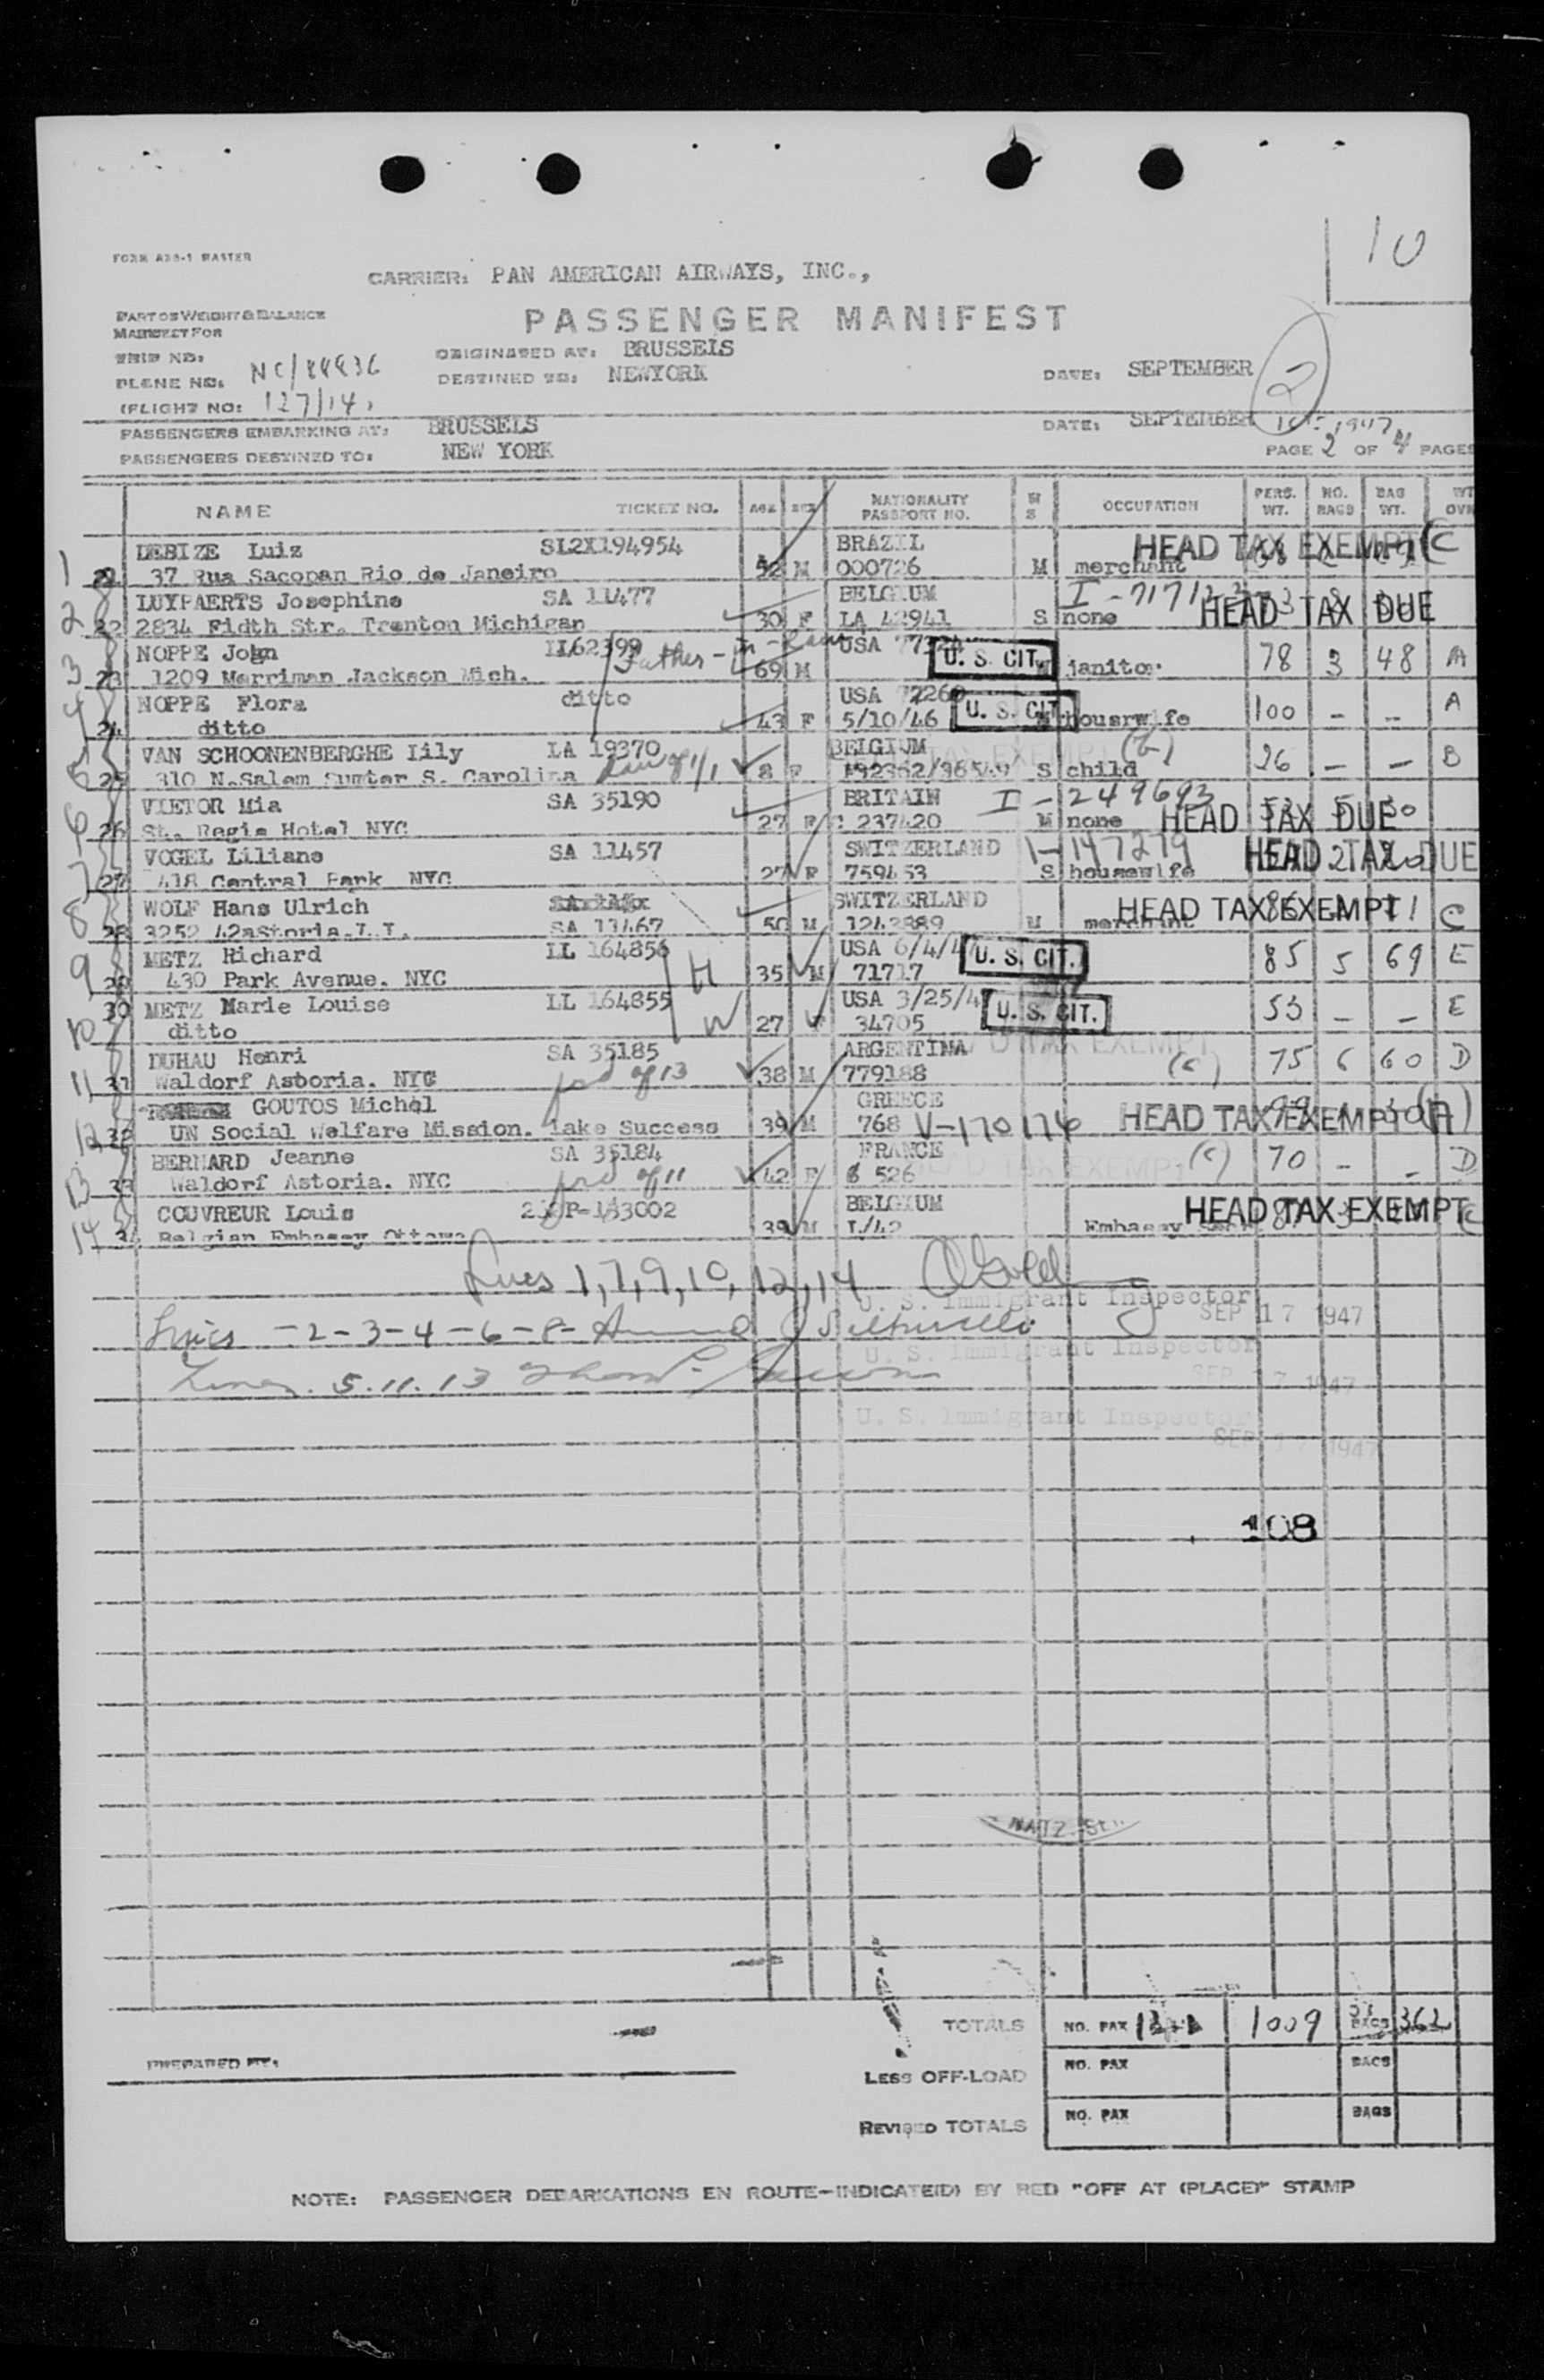 10
FORM ABS-1 MASTER
CARRIER: PAN AMERICAN AIRWAYS, INC.,
PART OF WEIGHT & BALANCE
MANIFEST FOR
PASSENGER MANIFEST
TRIP NO:
ORIGINATED AT: BRUSSELS
PLENE NO: NC/88836
DESTINED TO: NEWYORK
DATE: SEPTEMBER
2
(FLIGHT NO: 127/14
PASSENGERS EMBARKING AT: BRUSSELS
DATE: SEPTEMBER 1947
PASSENGERS DESTINED TO: NEW YORK
PAGE 2 OF 4 PAGES
NAME TICKET NO. AGE SEX NATIONALITY PASSPORT NO. M S OCCUPATION PERS. WT. NO. BAGS BAG WT. WT OVR
1 DEBIZE Luiz SL2X194954 BRAZIL HEAD TAX EXEMPT (C
37 Rua Sacopan Rio de Janeiro 52 M 000726 M merchant
2 LUYPAERTS Josephine SA 11477 BELGIUM HEAD TAX DUE
22 2834 Fidth Str. Trenton Michigan 30 F LA 42941 S none
3 NOPPE John LL62399 Father-in-Law USA U. S. CIT. 78 3 48 A
23 1209 Merriman Jackson Mich. 69 M janitor
4 NOPPE Flora ditto USA 72260 U. S. CIT 100 - - A
24 ditto 43 F 5/10/46 housrwife
5 VAN SCHOONENBERGHE Lily LA 19370 BELGIUM 26 - - B
25 310 N.Salem Sumter S. Carolina 8 F S child
6 VIETOR Mia SA 35190 BRITAIN I-249693 HEAD TAX DUE
26 St. Regis Hotel NYC 27 F C 237420 M none
7 VOGEL Liliane SA 11457 SWITZERLAND I-147279 HEAD TAX DUE
27 418 Central Park NYC 27 F 759453 S housewife
8 WOLF Hans Ulrich SWITZERLAND HEAD TAX EXEMPT C
28 3252 42astoria.L.I. SA 11467 50 M 1243889 M merchant
9 METZ Richard LL 164856 H USA 6/4/4 U. S. CIT. 85 5 69 E
29 430 Park Avenue. NYC 35 M 71717
30 METZ Marie Louise LL 164855 W USA 3/25/4 U. S. CIT. 53 - - E
10 ditto 27 F 34705
DUHAU Henri SA 35185 ARGENTINA (c) 75 6 60 D
11 31 Waldorf Astoria. NYC of 13 38 M 779188
GOUTOS Michel GREECE HEAD TAX EXEMPT (A)
12 32 UN Social Welfare Mission. Lake Success 39 M 768 V-170174
BERNARD Jeanne SA 35184 FRANCE (c) 70 - - D
13 33 Waldorf Astoria. NYC of 11 42 F 526
COUVREUR Louis BELGIUM HEAD TAX EXEMPT C
14 34 Belgian Embassy Ottawa 39 M L/42 Embassy
Lines 1,7,9,10,12,14
U. S. Immigrant Inspector SEP 17 1947
Lines -2-3-4-6-8-
U. S. Immigrant Inspector SEP 17 1947
Lines. 5.11.13
U. S. Immigrant Inspector
SEP 17 1947
108
TOTALS NO. PAX 1009 BAGS 362
PREPARED BY:
LESS OFF-LOAD NO. PAX BAGS
REVISED TOTALS NO. PAX BAGS
NOTE: PASSENGER DEBARKATIONS EN ROUTE-INDICATE(D) BY RED "OFF AT (PLACE)" STAMP